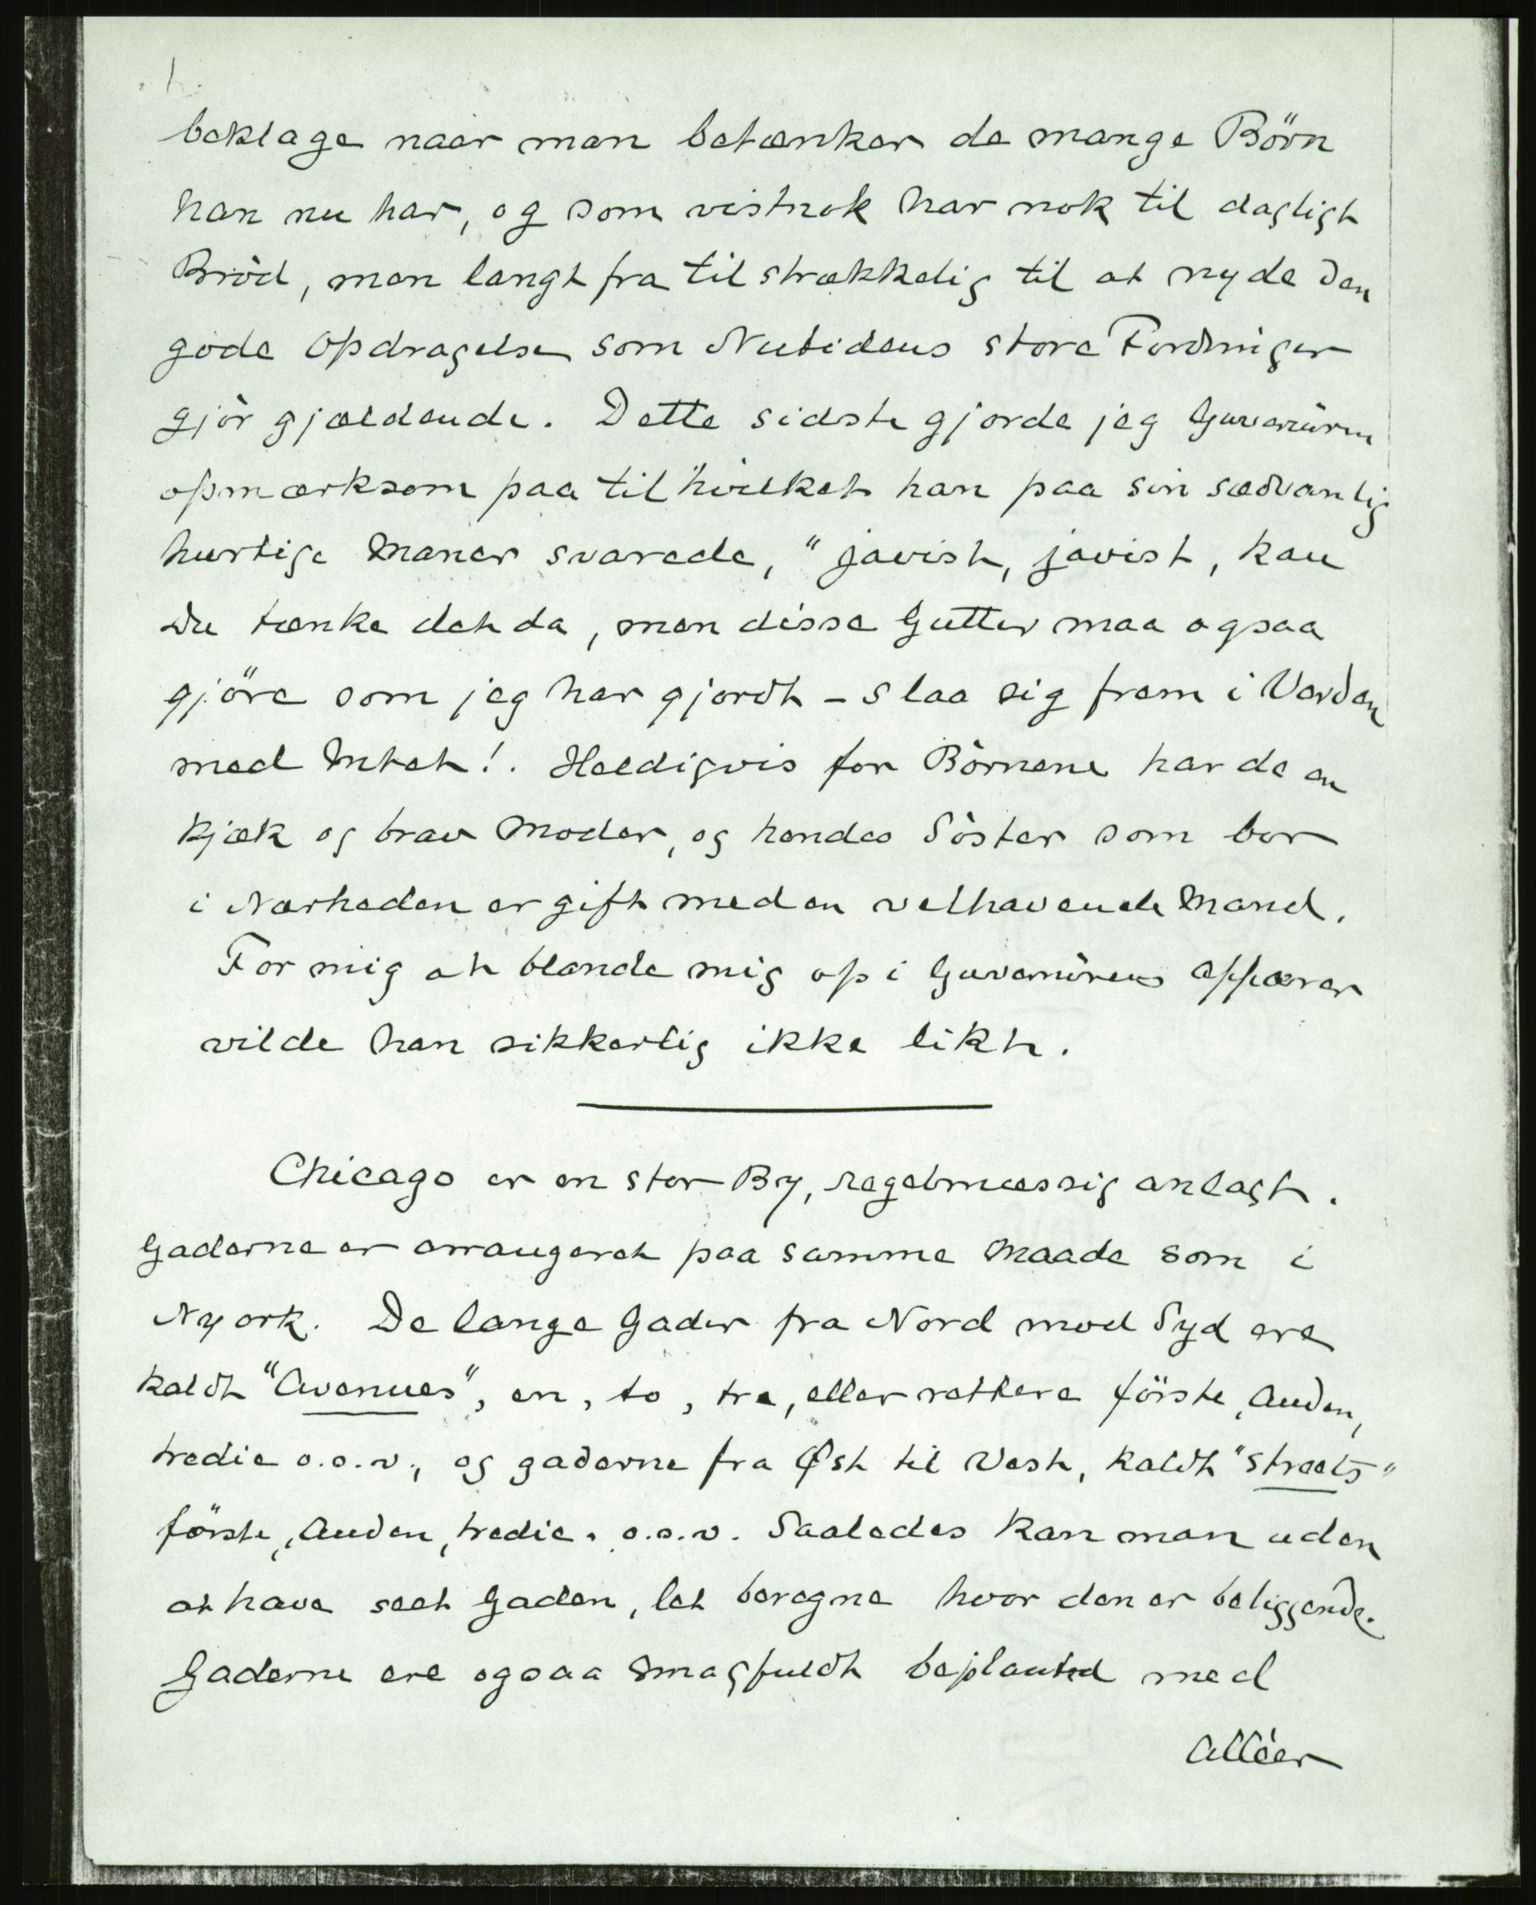 beklage naar man betænker de mange Börn
han nu har, og som vistnok har nok til dagligt
Bröd, men langt fra tilstrækkelig til at nyde den
gode Opdragelse som Nutidens store Fordringer
gjör gjældende. Dette sidste gjorde jeg Guvernören
opmærksom paa til hvilket han paa sin sædvanlig
hurtige Maner svarede, "javist, javist, kan
Du tænke det da, men disse Gutter maa ogsaa
gjöre som jeg har gjordt – slaa sig frem i Verden
med Intet!. Heldigvis for Börnene har de en
kjæk og brav Moder, og hendes Söster som bor
i Nærheden er gift med en velhavende Mand.
For mig at blande mig op i Guvernörens Affærer
vilde han sikkerlig ikke likt.
Chicago er en stor By, regelmæssig anlagt.
Gaderne er arrangeret paa samme Maade som i
NYork. De lange Gader fra Nord mod Syd ere
kaldt "Avenues", en, to, tre, eller rettere förste, Anden,
tredie o.s.v., og gaderne fra Øst til Vest, kaldt "Streets"
förste, Anden, tredie. o.s.v. Saaledes kan man uden
at have seet Gaden, let beregne hvor den er beliggende.
Gaderne ere ogsaa smagfuldt beplanted med
Alléer